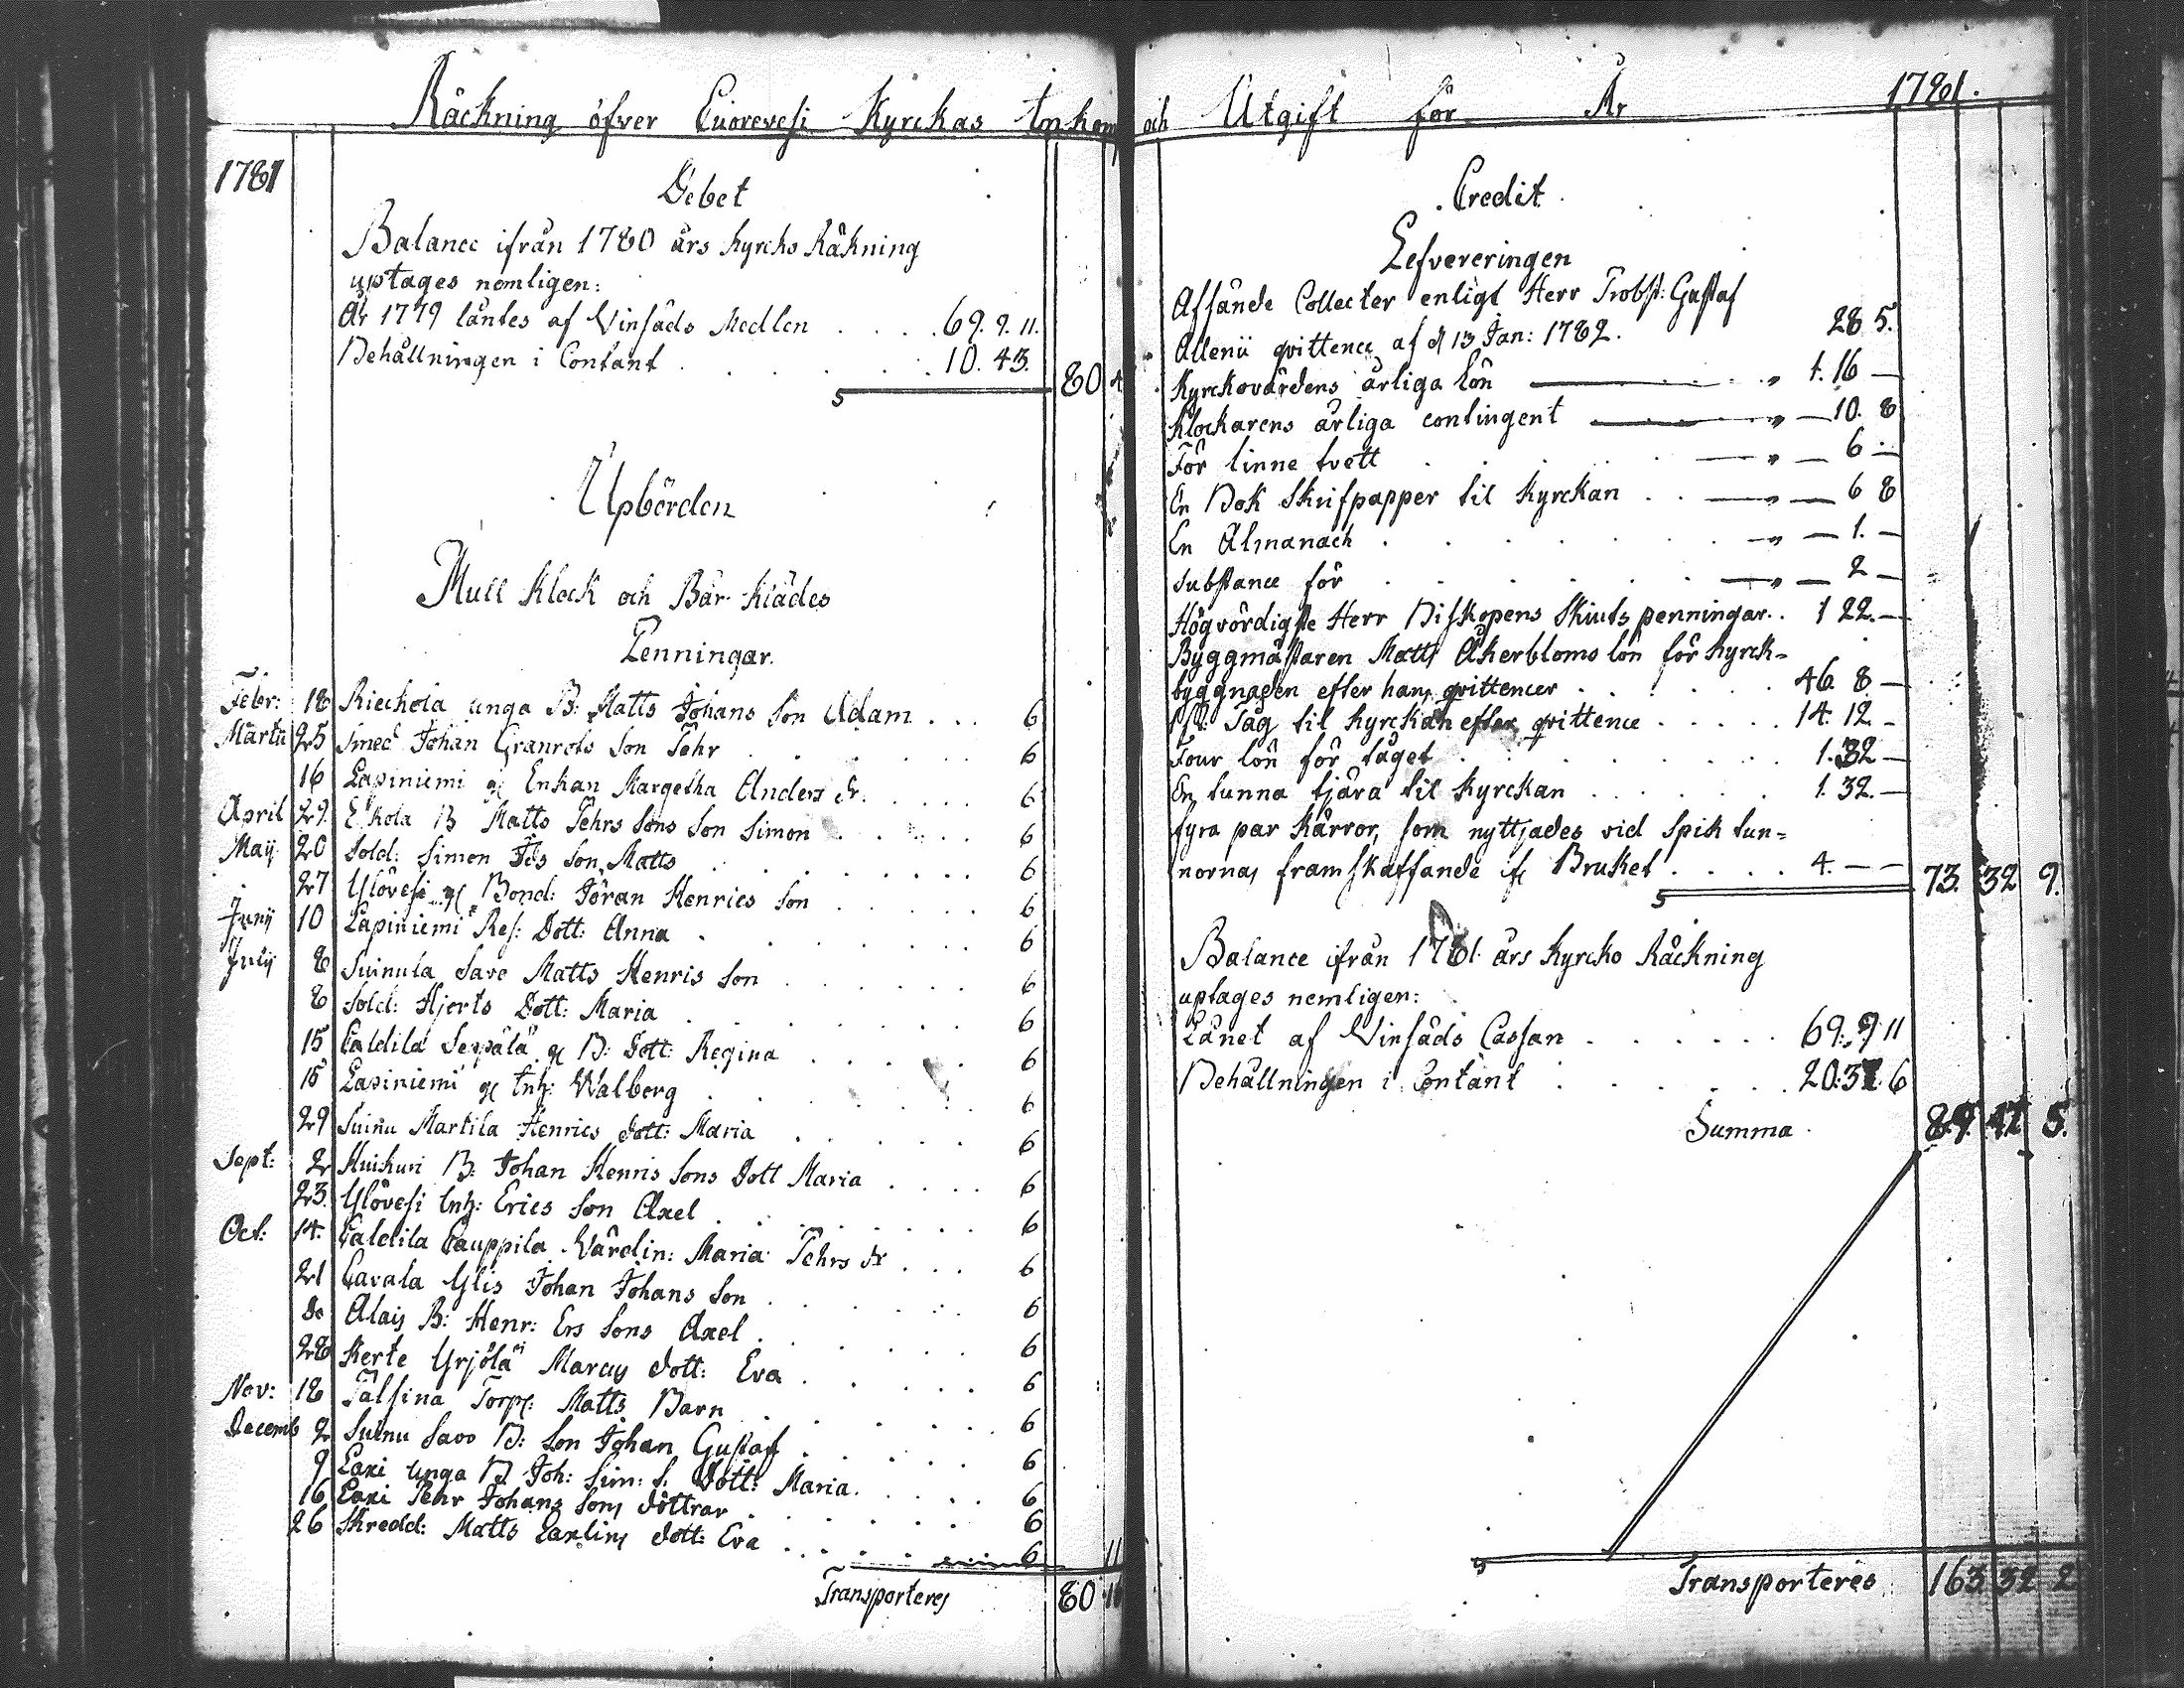 Räckning öfver Cuorevesi Kyrckas Inkom
1781
Debet
Balance ifrån 1780 års Kyrcko Räkning
uptages nemligen:
År 1779 låntes af Vinsäds Medlen . . . . 69. 9. 11.
Behållningen i Contant . . . . . . 10. 43.
80 4
Upbörden
Mull Klock och Bår-Klädes
Penningar.
Febr: 18 Riechola unga B: Matts Johans Son Adam . . . 6
Martii 25 Smed Johan Granrots Son Pehr . . . . 6
16 Lapiniemi Enkan Margetha Anders dr. . . . . 6
April 29. Eskola B Matts Pehrs Sons Son Simon . . . . 6
Maij 20 Sold: Simon Son Matts . . . . . . 6
27 Ylövesi Bond: Jöran Henrics Son . . . . . 6
Junij 10 Lapiniemi Dott: Anna . . . . . . 6
July 8 Suinula Savo Matts Henris Son . . . . . . 6
8 Sold: Hjerts Dott: Maria . . . . . . . 6
15 Caldila Seppälä B: Dott: Regina . . . . . 6
15 Lapiniemi Inh: Walborg . . . . . . . 6
29 Suinu Martila Henrics dott: Maria . . . . . 6
Sept: 2 Huikuri B: Johan Henris Sons Dott Maria . . . . 6
23. Ylövesi Inh: Erics Son Axel . . . . . . . 6
Oct: 14. Caldila Cauppila Maria Pehrs dr . . . 6
21 Cavala Ylis Johan Johans Son . . . . . . 6
do Alais B: Henr: Ers Sons Axel . . . . . . 6
28 Kerte Yrjölä Marcus dott: Eva . . . . . 6
Nov: 18 Pälsinä Torp: Matts Barn . . . . . . 6
Decemb 2 Suinu Savo B: Son Johan Gustaf . . . . . . 6
9 Laxi unga B Joh: Sim: S. Dott: Maria. . . . . 6
16 Laxi Pehr Johans Sons döttrar . . . . . . 6
26 Skredd: Matts dott: Eva . . . . . . 6
Transporteres 80
och Utgift för År 1781.
Credit
Lefvereringen
Afsände Collecter enligt Herr Probst: Gustaf
Allenii qvittence af d 13 Jan: 1782. 28 5.
Kyrckovärdens årliga lön 1. 16 —
Klockarens årliga contingent — 10. 8
För linne tvett — 6 —
En Bok Skrifpapper til Kyrckan . . — 6 8
En Almanach . . . . . . — 1. —
Substance för . . . . . — 2 —
Högvördigste Herr Biskopens Skiutspenningar. . 1 22. —
Byggmästaren Matts Åkerbloms lön för Kyrck-
byggnaden efter hans qvittencer . . . . . . 46. 8 —
Tåg til Kyrckan efter qvittence . . . . . 14. 12 —
Four lön för tåget . . . . . . . . 1. 32 —
En tunna tjära til Kyrckan . . . . . . 1. 32. —
fyra par Kärror, som nyttjades vid Spik tun-
nornas framskaffande fr Bruket . . . . 4. — —
73. 32 9.
Balance ifrån 1781 års Kyrcko Räckning
uptages nemligen:
Lånet af Vinsäds Cassan . . . . . . 69. 9 11
Behållningen i Contant . . . . . . 20. 37. 6
Summa 89. 47 5.
Transporteres 163 32 2